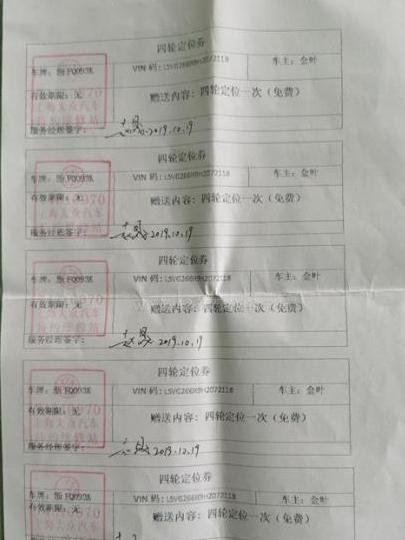 四轮定位券
车牌: 浙FQ093K VIN 码: LSVG266R9H2072118 车主: 金叶
有效期限: 无 赠送内容: 四轮定位一次（免费）
服务经理签字: 2019.10.19
四轮定位券
车牌: 浙FQ093K VIN 码: LSVG266R9H2072118 车主: 金叶
有效期限: 无 赠送内容: 四轮定位一次（免费）
服务经理签字: 2019.10.19
四轮定位券
车牌: 浙FQ093K VIN 码: LSVG266R9H2072118 车主: 金叶
有效期限: 无 赠送内容: 四轮定位一次（免费）
服务经理签字: 2019.10.19
四轮定位券
车牌: 浙FQ093K VIN 码: LSVG266R9H2072118 车主: 金叶
有效期限: 无 赠送内容: 四轮定位一次（免费）
服务经理签字: 2019.10.19
四轮定位券
车牌: 浙FQ093K VIN 码: LSVG266R9H2072118 车主: 金叶
有效期限: 无 赠送内容: 四轮定位一次（免费）